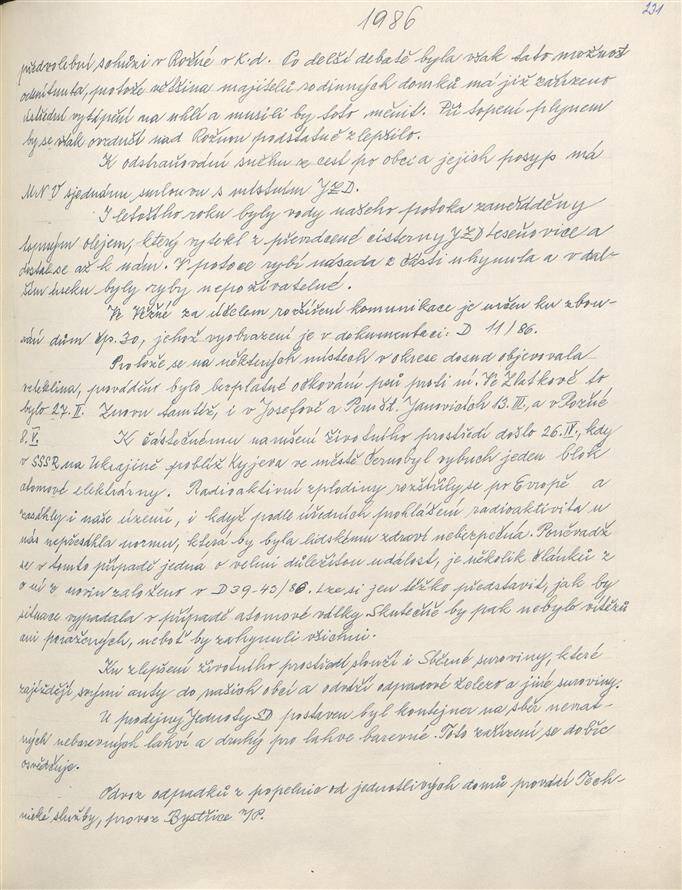 1986
231
předvolební schůzi v Rožné v k.d. Po delší debatě byla však tato možnost
odmítnuta, protože většina majitelů rodinných domků má již zařízeno
ústřední vytápění na uhlí a musili by toto měnit. Při topení plynem
by se však ovzduší nad Rožnou podstatně zlepšilo.
K odstraňování sněhu z cest po obci a jejich posyp má
M.N.V sjednanou smlouvu s místním JZD.
I letošního roku byly vody našeho potoka znečištěny
topným olejem, který vytekl z převrácené cisterny JZD Lesoňovice a
dostal se až k nám. V potoce rybí násada z části uhynula a v dal-
ším úseku byly ryby nepoživatelné.
Ve za účelem rozšíření komunikace je určen ku zbou-
rání dům čp. 30, jehož vyobrazení je v dokumentaci: D 11/86.
Protože se na některých místech v okrese dosud objevovala
vzteklina, prováděno bylo bezplatné očkování psů proti ní. Ve Zlatkově to
bylo 27.II. Znovu tamtéž, i v Josefově a Janovicích 13.III, a v Rožné
8.V.
K částečnému narušení životního prostředí došlo 26.IV, kdy
v SSSR na Ukrajině poblíž Kyjeva ve městě Černobyl vybuch jeden blok
atomové elektrárny. Radioaktivní zplodiny rozšířily se po Evropě a
zasáhly i naše území, i když podle úředních prohlášení radioaktivita u
nás nepřesáhla normu, která by byla lidskému zdraví nebezpečná. Poněvadž
se v tomto případě jedná o velmi důležitou událost, je několik článků z
o ní z novin založeno v D 39-43/86. Lze si jen těžko představit, jak by
situace vypadala v případě atomové války. Skutečně by pak nebylo vítězů
ani poražených, neboť by zahynuli všichni.
Ku zlepšení životního prostředí slouží i Sběrné suroviny, které
zajíždějí svými auty do našich obcí a odváží odpadové železo a jiné suroviny.
U prodejny Jednoty SD postaven byl kontejner na sběr nevrat-
ných nebarevných lahví a druhý pro lahve barevné. Toto zařízení se dobře
osvědčuje.
Odvoz odpadků z popelnic od jednotlivých domů provádí Tech-
nické služby, provoz Bystřice n/P.